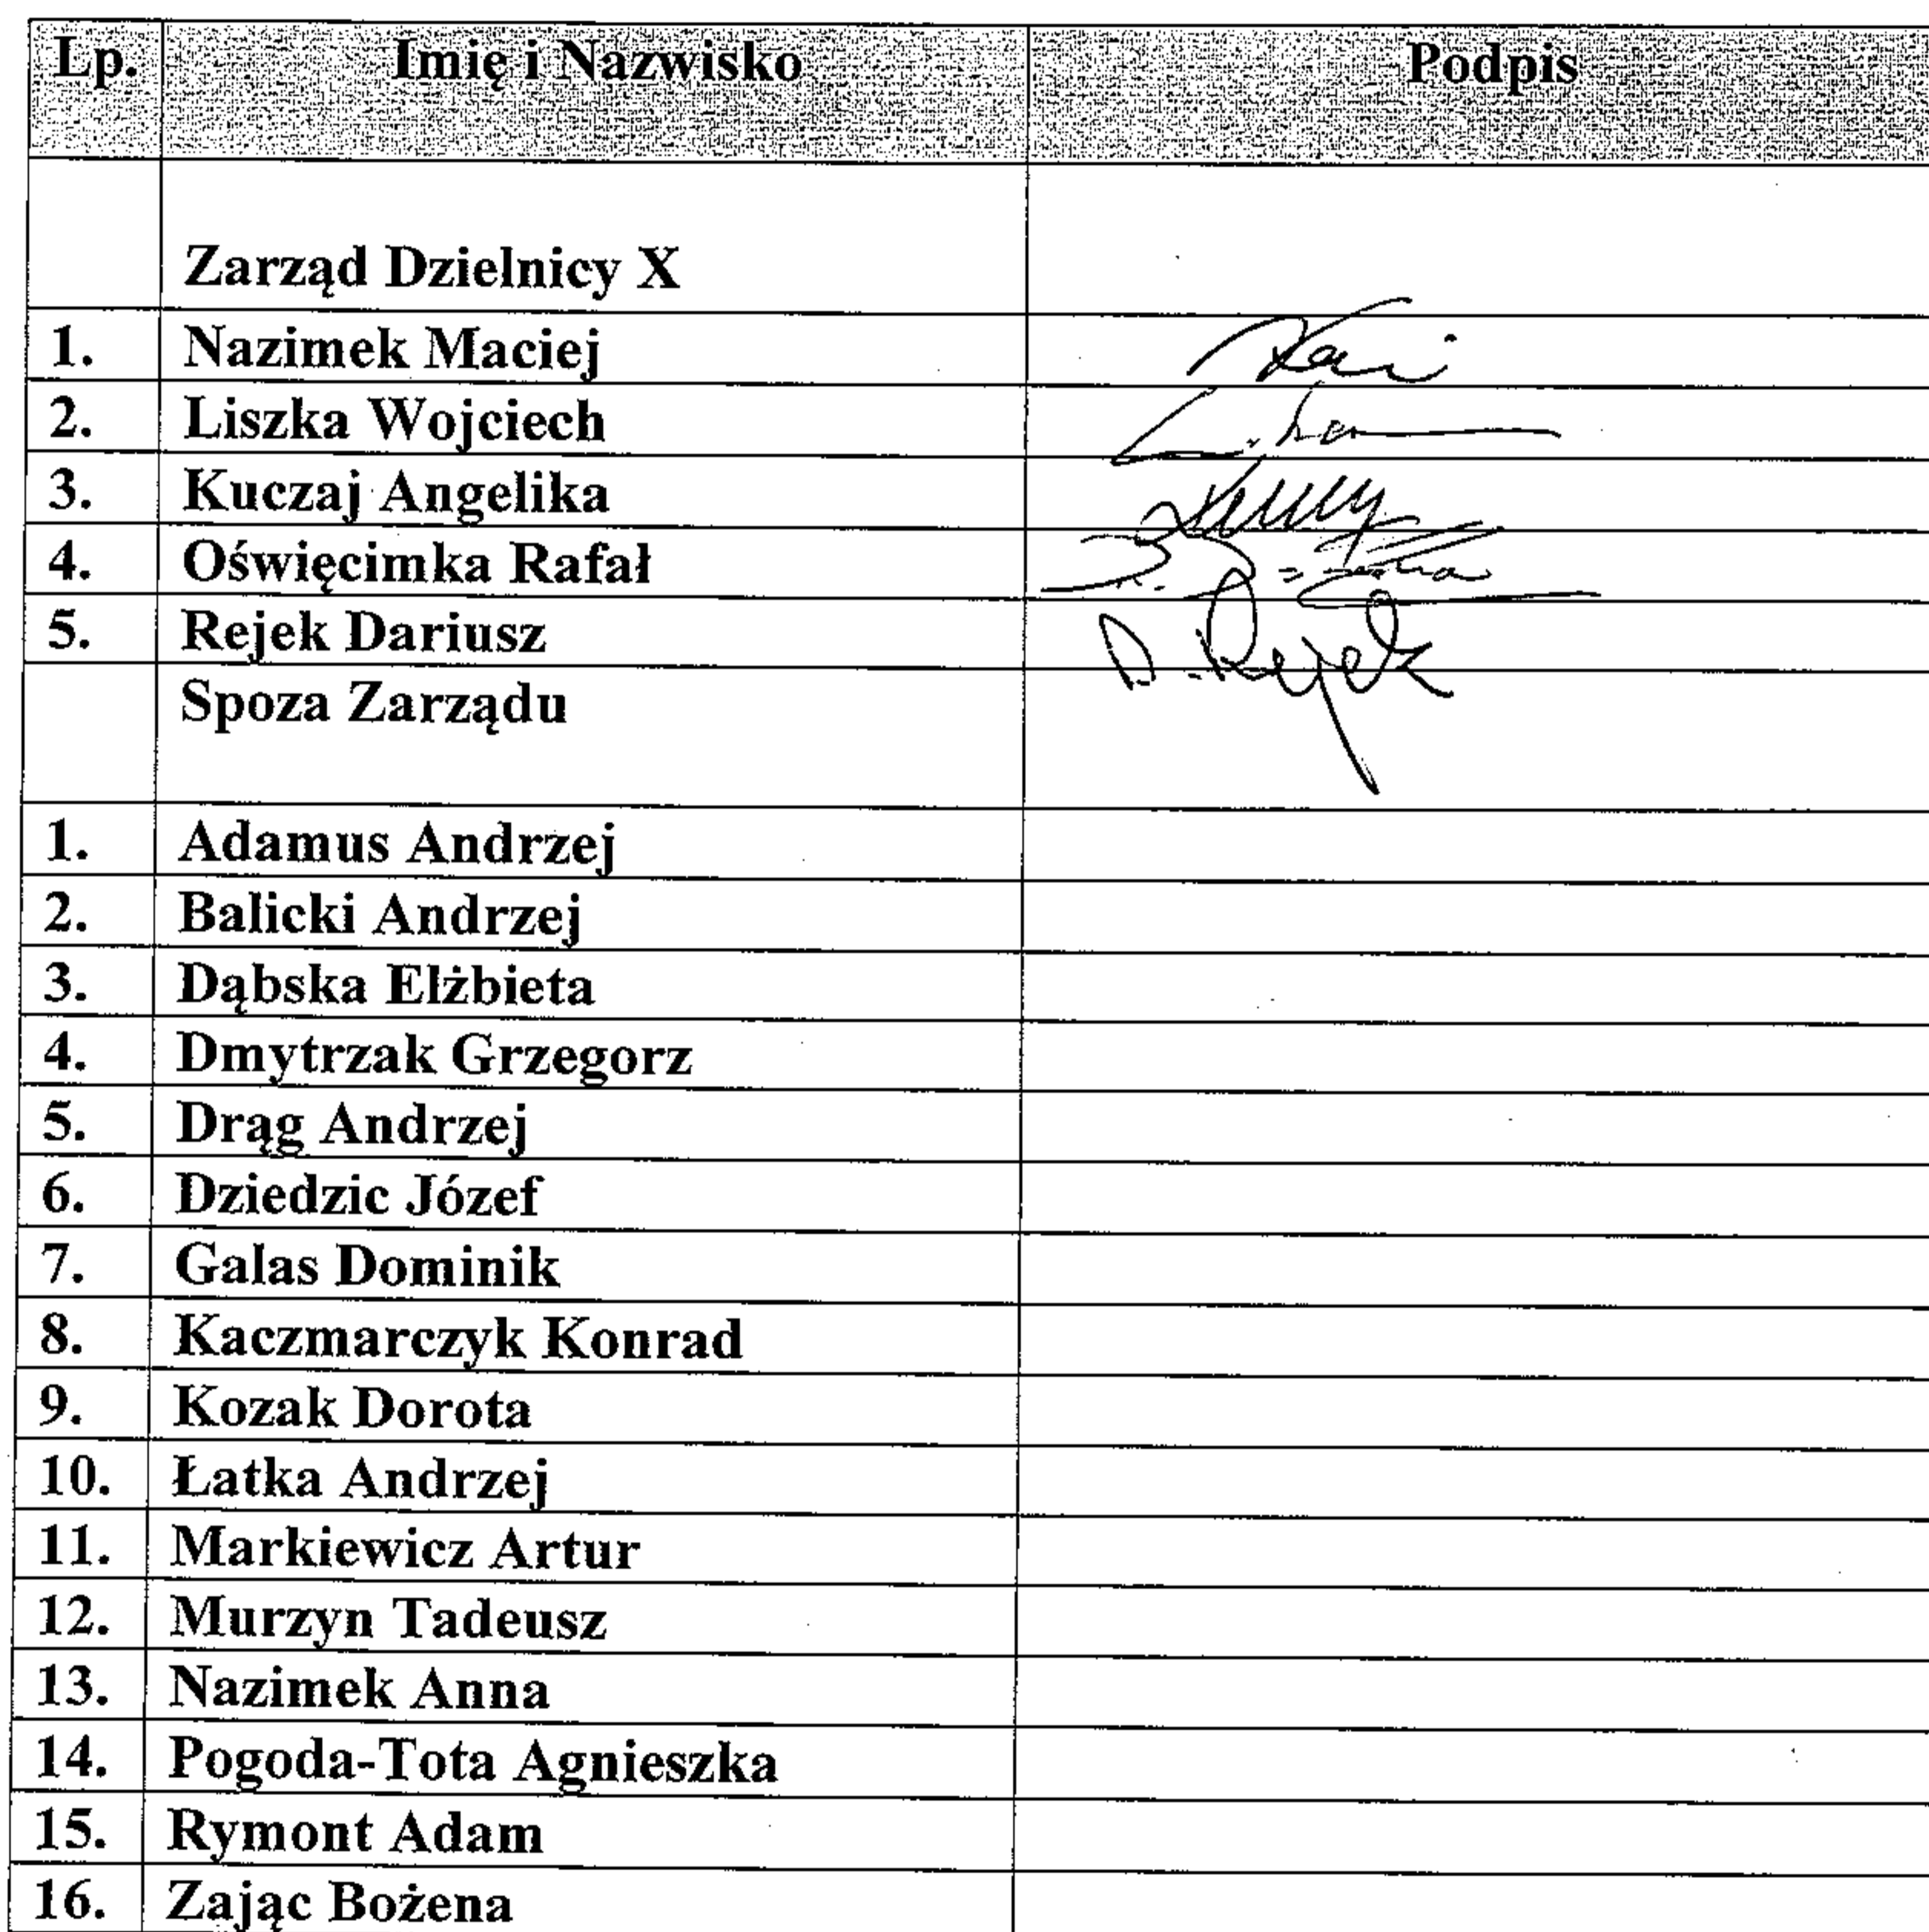 Lp. Imię i Nazwisko Podpis
Zarząd Dzielnicy X
1. Nazimek Maciej
2. Liszka Wojciech
3. Kuczaj Angelika
4. Oświęcimka Rafał
5. Rejek Dariusz D. Rejek
Spoza Zarządu
1. Adamus Andrzej
2. Balicki Andrzej
3. Dąbska Elżbieta
4. Dmytrzak Grzegorz
5. Drąg Andrzej
6. Dziedzic Józef
7. Galas Dominik
8. Kaczmarczyk Konrad
9. Kozak Dorota
10. Łatka Andrzej
11. Markiewicz Artur
12. Murzyn Tadeusz
13. Nazimek Anna
14. Pogoda-Tota Agnieszka
15. Rymont Adam
16. Zając Bożena